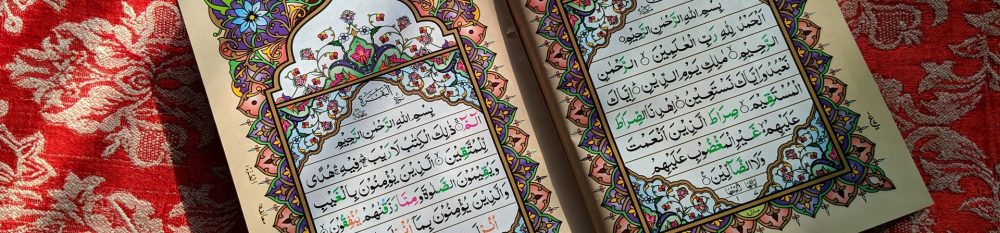 بِسْمِ اللهِ الرَّحْمٰنِ الرَّحِيْمِ
اَلْحَمْدُ لِلّٰهِ رَبِّ الْعٰلَمِيْنَ ۝ الرَّحْمٰنِ
الرَّحِيْمِ ۝ مٰلِكِ يَوْمِ الدِّيْنِ ۝ اِيَّاكَ
نَعْبُدُ وَاِيَّاكَ نَسْتَعِيْنُ ۝ اِهْدِنَا الصِّرَاطَ
الْمُسْتَقِيْمَ ۝ صِرَاطَ الَّذِيْنَ اَنْعَمْتَ
عَلَيْهِمْ غَيْرِ الْمَغْضُوْبِ عَلَيْهِمْ
وَلَا الضَّآلِّيْنَ ۝
بِسْمِ اللهِ الرَّحْمٰنِ الرَّحِيْمِ
الٓمّٓ ۝ ذٰلِكَ الْكِتٰبُ لَا رَيْبَ ۛ فِيْهِ ۛ هُدًى
لِّلْمُتَّقِيْنَ ۝ الَّذِيْنَ يُؤْمِنُوْنَ بِالْغَيْبِ
وَيُقِيْمُوْنَ الصَّلٰوةَ وَمِمَّا رَزَقْنٰهُمْ يُنْفِقُوْنَ
وَالَّذِيْنَ يُؤْمِنُوْنَ بِمَآ اُنْزِلَ